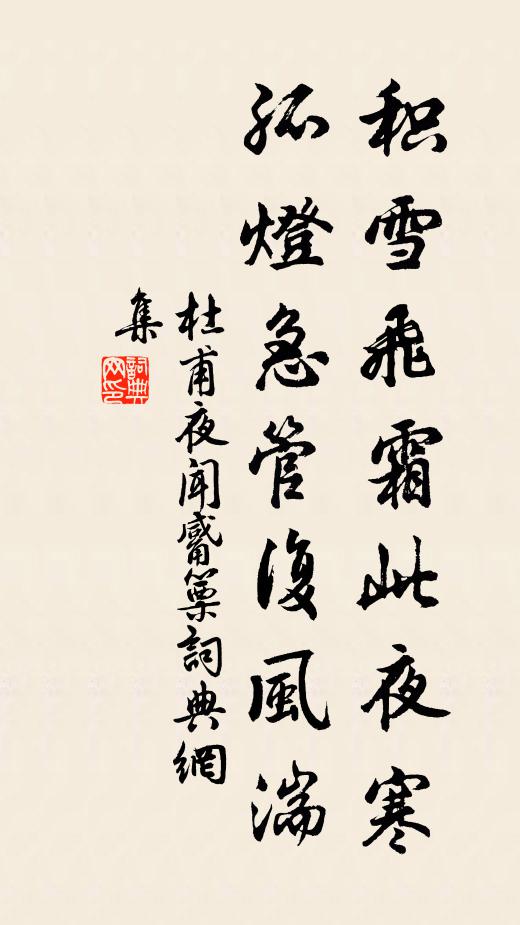 积雪飛霜此夜寒
孤燈急管復風湍
杜甫夜聞觱篥詞典網
集
詞典
网印